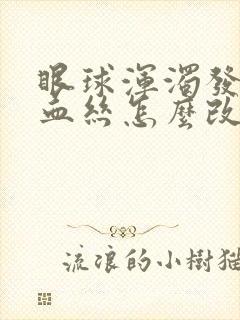 眼球渾濁發
血絲怎麼改
流浪的小樹猫